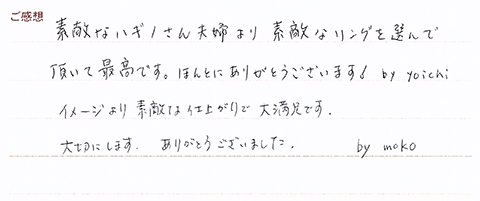 ご感想
素敵なハギノさん夫婦より 素敵なリングを選んで
頂いて最高です。ほんとにありがとうございます! by yoichi
イメージより素敵な仕上がりで大満足です.
大切にします. ありがとうございました. by moko